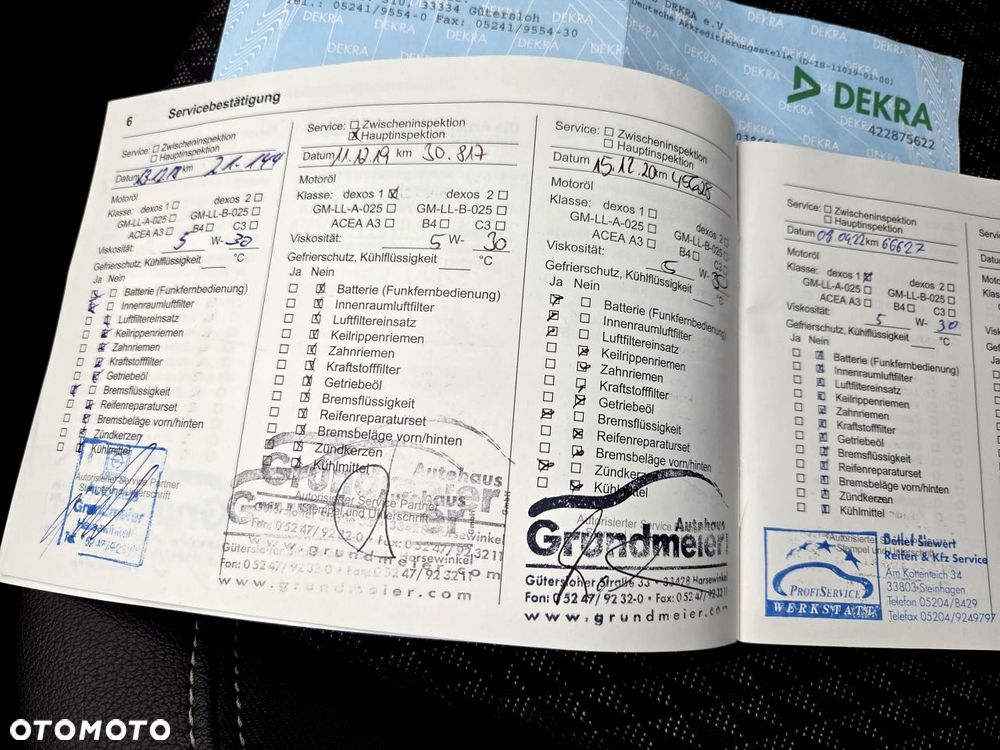 310, 33334 Gütersloh
Tel.: 05241/9554-0 Fax: 05241/9554-30
DEKRA e.V.
Deutsche Akkreditierungsstelle (D-IS-11019-01-00)
DEKRA
422875622
6 Servicebestätigung
Service: Zwischeninspektion
Hauptinspektion
Datum km 21.144
Motoröl
Klasse: dexos 1 dexos 2
GM-LL-A-025 GM-LL-B-025
ACEA A3 B4 C3
Viskosität: 5 W- 30
Gefrierschutz, Kühlflüssigkeit °C
Ja Nein
Batterie (Funkfernbedienung)
Innenraumluftfilter
Luftfiltereinsatz
Keilrippenriemen
Zahnriemen
Kraftstofffilter
Getriebeöl
Bremsflüssigkeit
Reifenreparaturset
Bremsbeläge vorn/hinten
Zündkerzen
Kühlmittel
Autorisierter Service Partner
Autohaus
Grundmeier
Harsewinkel
Service: Zwischeninspektion
Hauptinspektion
Datum 11.12.19 km 30.817
Motoröl
Klasse: dexos 1 dexos 2
GM-LL-A-025 GM-LL-B-025
ACEA A3 B4 C3
Viskosität: 5 W- 30
Gefrierschutz, Kühlflüssigkeit °C
Ja Nein
Batterie (Funkfernbedienung)
Innenraumluftfilter
Luftfiltereinsatz
Keilrippenriemen
Zahnriemen
Kraftstofffilter
Getriebeöl
Bremsflüssigkeit
Reifenreparaturset
Bremsbeläge vorn/hinten
Zündkerzen
Kühlmittel
Autorisierter Service Partner
Stempel und Unterschrift
Autohaus
Grundmeier
GmbH
Harsewinkel
Fon: 0 52 47/ 92 32-0 • Fax: 0 52 47/ 92 3211
www.grundmeier.com
Service: Zwischeninspektion
Hauptinspektion
Datum 15.12.20 km
Motoröl
Klasse: dexos 1 dexos 2
GM-LL-A-025 GM-LL-B-025
ACEA A3 B4 C3
Viskosität: 5 W- 30
Gefrierschutz, Kühlflüssigkeit °C
Ja Nein
Batterie (Funkfernbedienung)
Innenraumluftfilter
Luftfiltereinsatz
Keilrippenriemen
Zahnriemen
Kraftstofffilter
Getriebeöl
Bremsflüssigkeit
Reifenreparaturset
Bremsbeläge vorn/hinten
Zündkerzen
Kühlmittel
Autorisierter Service
Autohaus
Grundmeier
Gütersloher Straße 33 • 33428 Harsewinkel
Fon: 0 52 47/ 92 32-0 • Fax: 0 52 47/ 92 3211
www.grundmeier.com
Service: Zwischeninspektion
Hauptinspektion
Datum 08.04.22 km 66627
Motoröl
Klasse: dexos 1 dexos 2
GM-LL-A-025 GM-LL-B-025
ACEA A3 B4 C3
Viskosität: 5 W- 30
Gefrierschutz, Kühlflüssigkeit °C
Ja Nein
Batterie (Funkfernbedienung)
Innenraumluftfilter
Luftfiltereinsatz
Keilrippenriemen
Zahnriemen
Kraftstofffilter
Getriebeöl
Bremsflüssigkeit
Reifenreparaturset
Bremsbeläge vorn/hinten
Zündkerzen
Kühlmittel
PROFISERVICE
WERKSTATT
Detlef Siewert
Reifen & Kfz Service
Am Kottenteich 34
33803 Steinhagen
Telefon 05204/8429
Telefax 05204/9249797
OTOMOTO